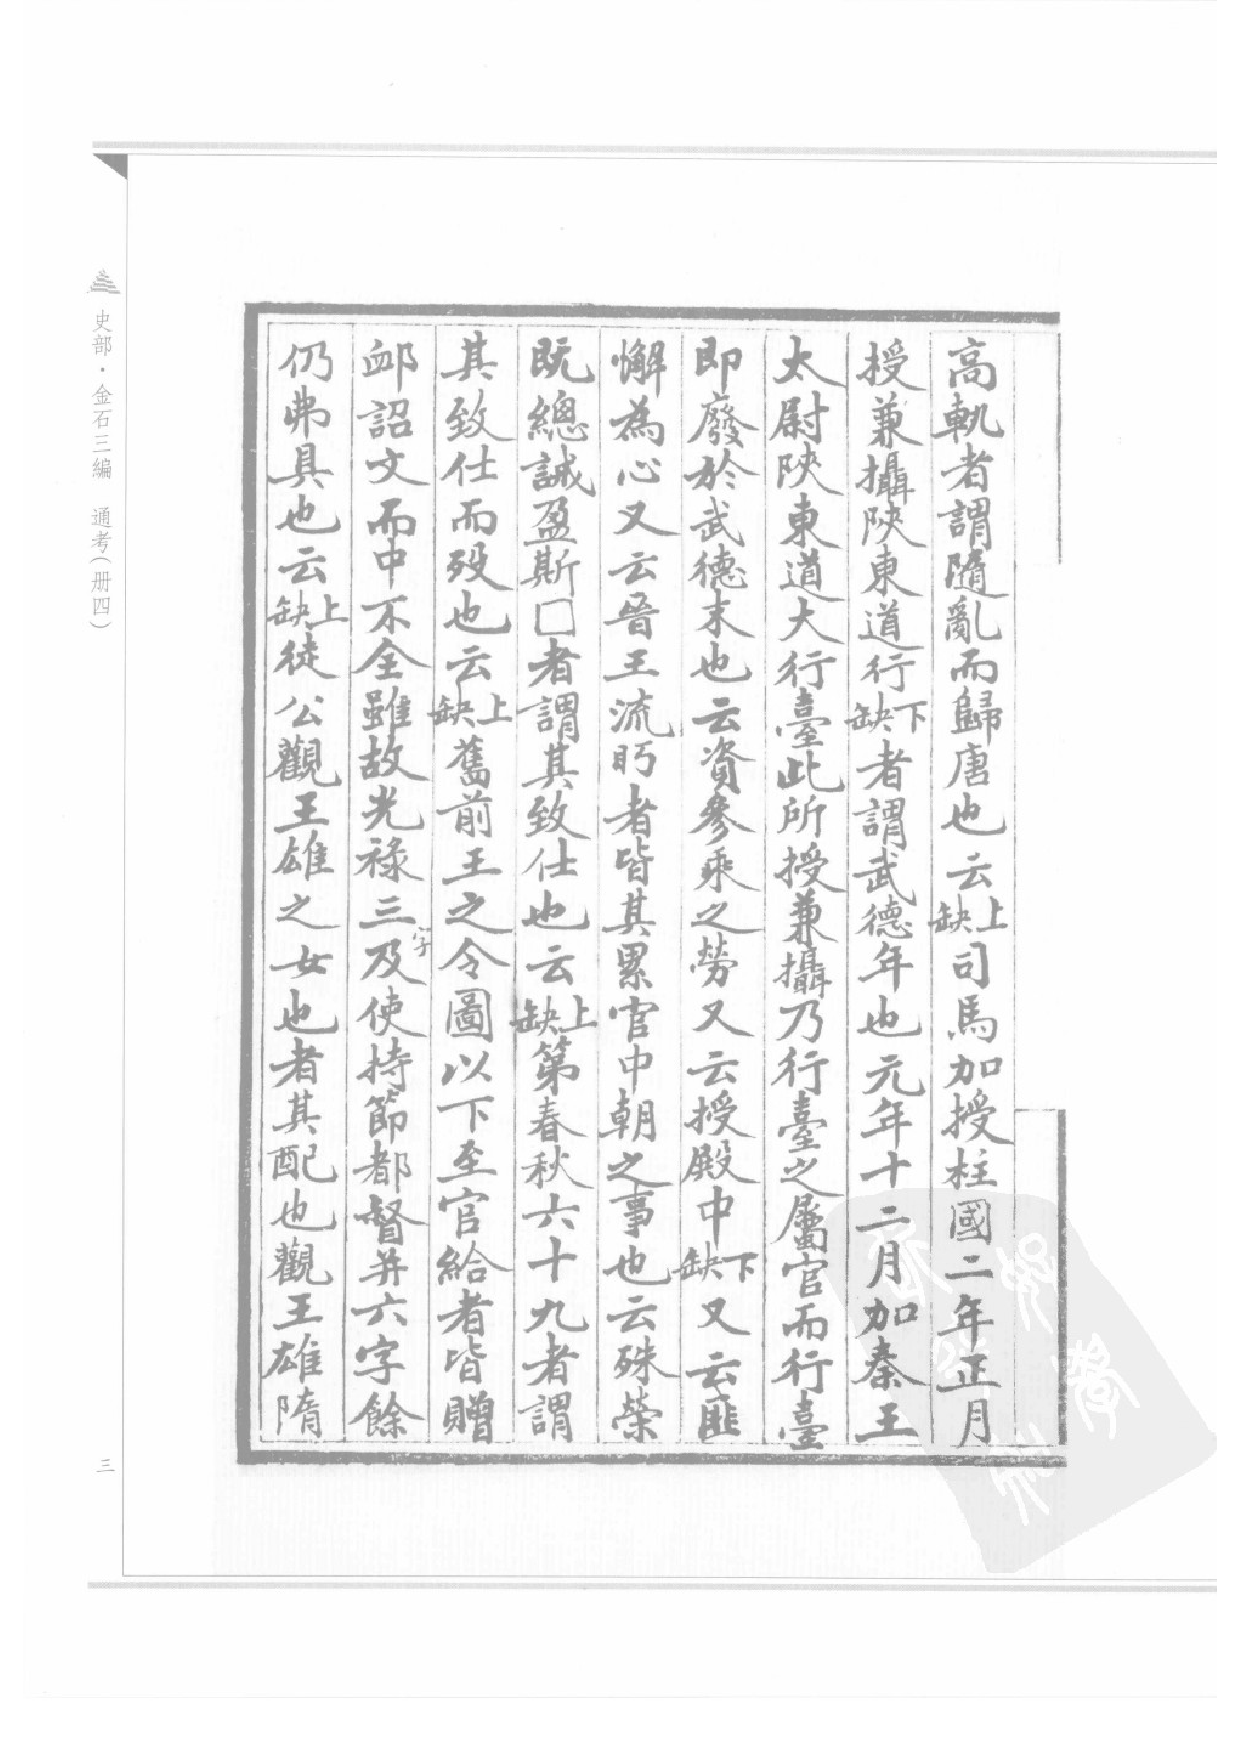 高軌者謂隨亂而歸唐也云上缺司馬加授柱國二年正月
授兼攝陝東道行下缺者謂武德年也元年十二月加秦王
太尉陝東道大行臺此所授兼攝乃行臺之屬官而行臺
即廢於武德末也云資參乘之勞又云授殿中下缺又云匪
懈為心又云晉王流眄者皆其累官中朝之事也云殊榮
既總誡盈斯□者謂其致仕也云上缺第春秋六十九者謂
其致仕而歿也云上缺舊前王之令圖以下至官給者皆贈
卹詔文而中不全雖故光祿三字及使持節都督并六字餘
仍弗具也云上缺徒公觀王雄之女也者其配也觀王雄隋
史部·金石三編 通考(册四)
三